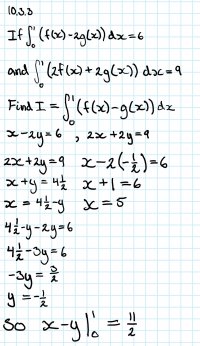 10.3.3
If ∫₀¹ (f(x)-2g(x)) dx = 6
and ∫₀¹ (2f(x)+2g(x)) dx = 9
Find I = ∫₀¹ (f(x)-g(x)) dx
x-2y=6 , 2x+2y=9
2x+2y=9 x-2(-½)=6
x+y=4½ x+1=6
x=4½-y x=5
4½-y-2y=6
4½-3y=6
-3y=3/2
y=-½
So x-y|₀¹ = 11/2